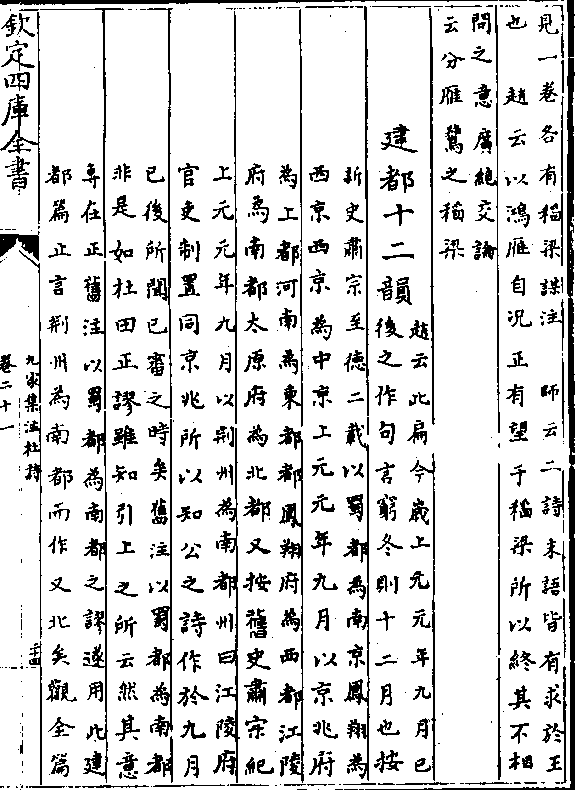 見一卷各有稻梁謀注　師云二詩末語皆有求於王
也　趙云以鴻雁自况正有望于稻梁所以終其不相
問之意廣絶交論
云分雁鶩之稻梁
建都十二韻
趙云此扁今歲上元元年九月已
後之作句言窮冬則十二月也按
新史肅宗至德二載以蜀都為南京鳳翔為
西京西京為中京上元元年九月以京兆府
為上都河南為東都都鳳翔府為西都江陵
府為南都太原府為北都又按舊史肅宗紀
上元元年九月以荆州為南都州曰江陵府
官吏制置同京兆所以知公之詩作於九月
已後所聞已審之時矣舊注以蜀都為南都
非是如杜田正謬雖知引上之所云然其意
專在正舊注以蜀都為南都之謬遂用此建
都篇止言荆州為南都而作又北矣觀全篇
欽定四庫全書
九家集注杜詩
卷二十一
二十四